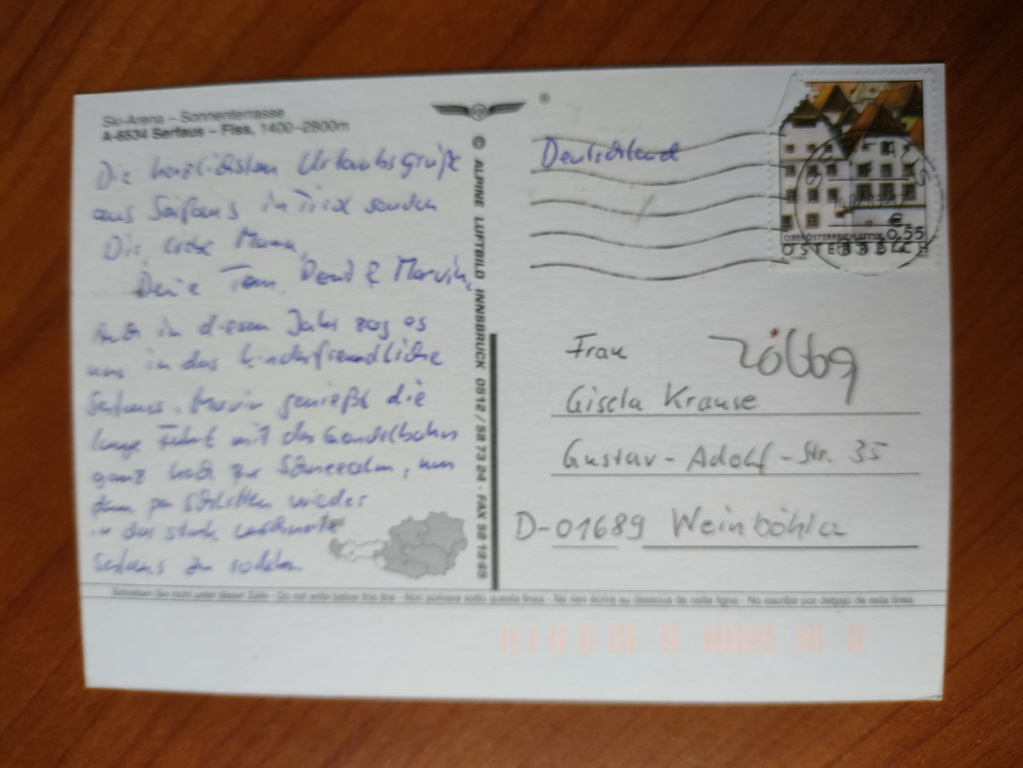 Ski-Arena – Sonnenterrasse
A-6534 Serfaus – Fiss, 1400–2800m
Die herzlichsten Urlaubsgrüße
aus Serfaus in Tirol senden
Dir, liebe Mama,
Deine Tom, & Marvin,
Auch in diesem Jahr zog es
uns in das kinderfreundliche
Serfaus. Marvin genießt die
lange Fahrt mit der Gondelbahn
ganz hoch zur, um
dann per Schlitten wieder
in das stark
Serfaus zu rodeln.
® 
© ALPINE LUFTBILD INNSBRUCK 0512/587324 · FAX 581983
Deutschland
OBERÖSTERREICH, STEYR
€ 0,55
ÖSTERREICH
Frau
Gisela Krause
Gustav-Adolf-Str. 35
D-01689 Weinböhla
Schreiben Sie nicht unter dieser Zeile · Do not write below this line · Non scrivere sotto questa linea · Ne rien écrire au dessous de cette ligne · No escribir por debajo de esta línea